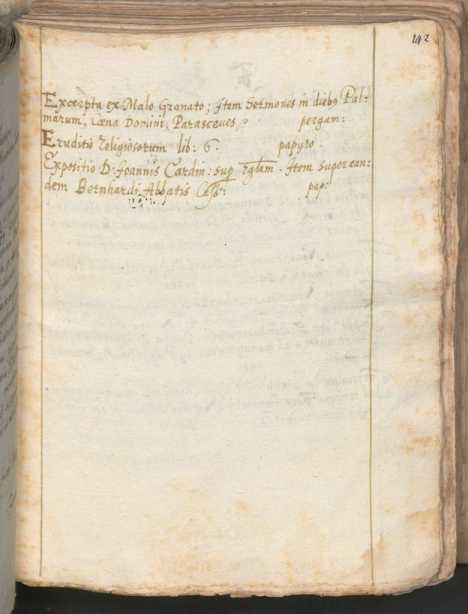 142
Excerpta ex Malo Granato; Item Sermones in dieb9 Pal:
marum, Cœna Domini, Parasceues. pergam:
Eruditio religiosorum lib: 6. papyro.
Expositio D: Joannis Cardin: sup r̃glam. Item super ean:
dem Bernhardi Abbatis Cass: pap: